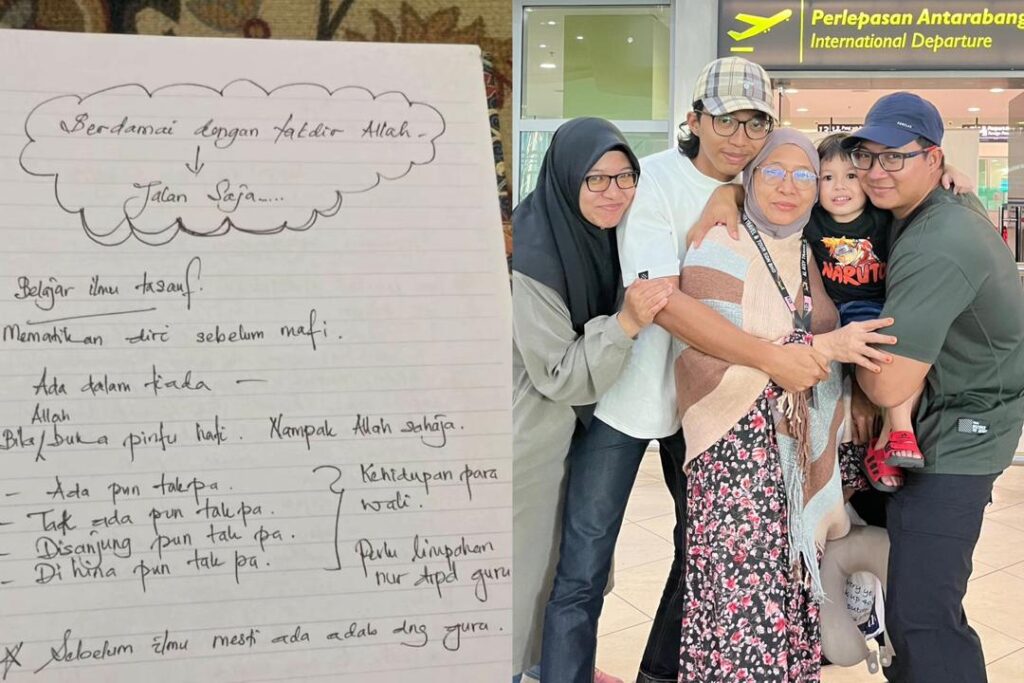 Berdamai dengan takdir Allah.
↓
Jalan Saja....
Belajar ilmu tasauf.
Mematikan diri sebelum mati.
Ada dalam tiada —
Allah
Bila / buka pintu hati. Nampak Allah sahaja.
- Ada pun takpa.
- Tak ada pun tak pa.
- Disanjung pun tak pa.
- Di hina pun tak pa.
Kehidupan para
wali.
Perlu limpahan
nur drpd guru
* Sebelum ilmu mesti ada adab dng guru.
Perlepasan Antarabang
International Departure
NARUTO